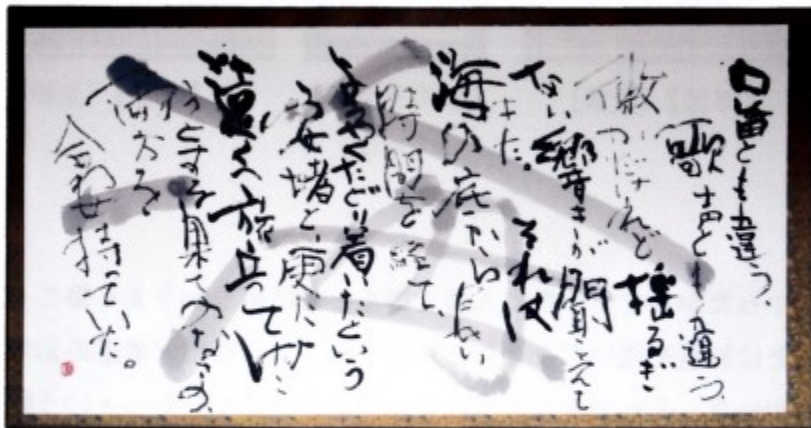 口笛とも違う、
歌声とも違う、
微かだけれど揺るぎ
ない響きが聞こえて
きた。それは
海の底から長い
時間を経て、
ようやくたどり着いたという
安堵と、更に
遠く旅立ってゆこ
うとする果てのなさの、
両方を
合わせ持っていた。